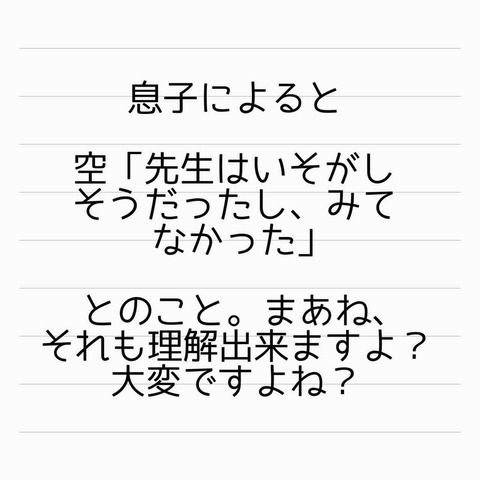 息子によると
空「先生はいそがし
そうだったし、みて
なかった」
とのこと。まあね、
それも理解出来ますよ？
大変ですよね？